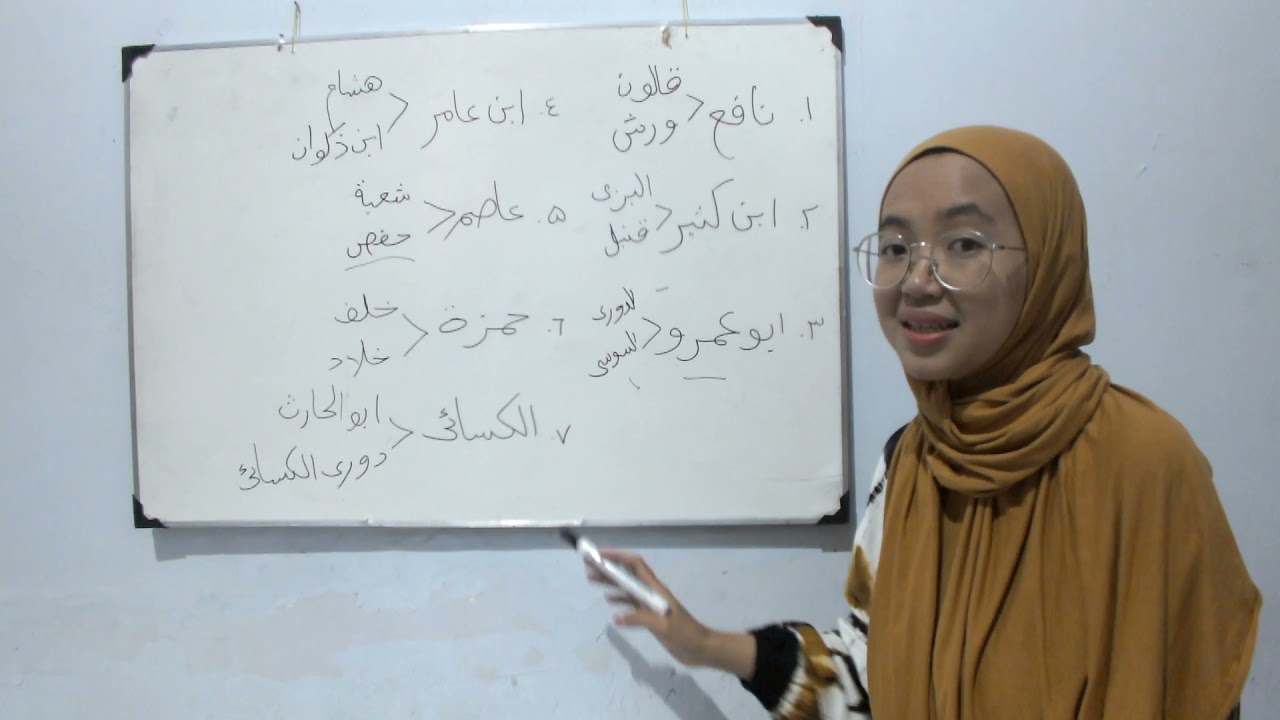 ١. نافع < قالون
ورش
٢. ابن كثير < البزى
قنبل
٣. ابو عمرو < الدورى
السوسى
٤. ابن عامر < هشام
ابن ذكوان
٥. عاصم < شعبة
حفص
٦. حمزة < خلف
خلاد
٧. الكسائى < ابو الحارث
دورى الكسائى